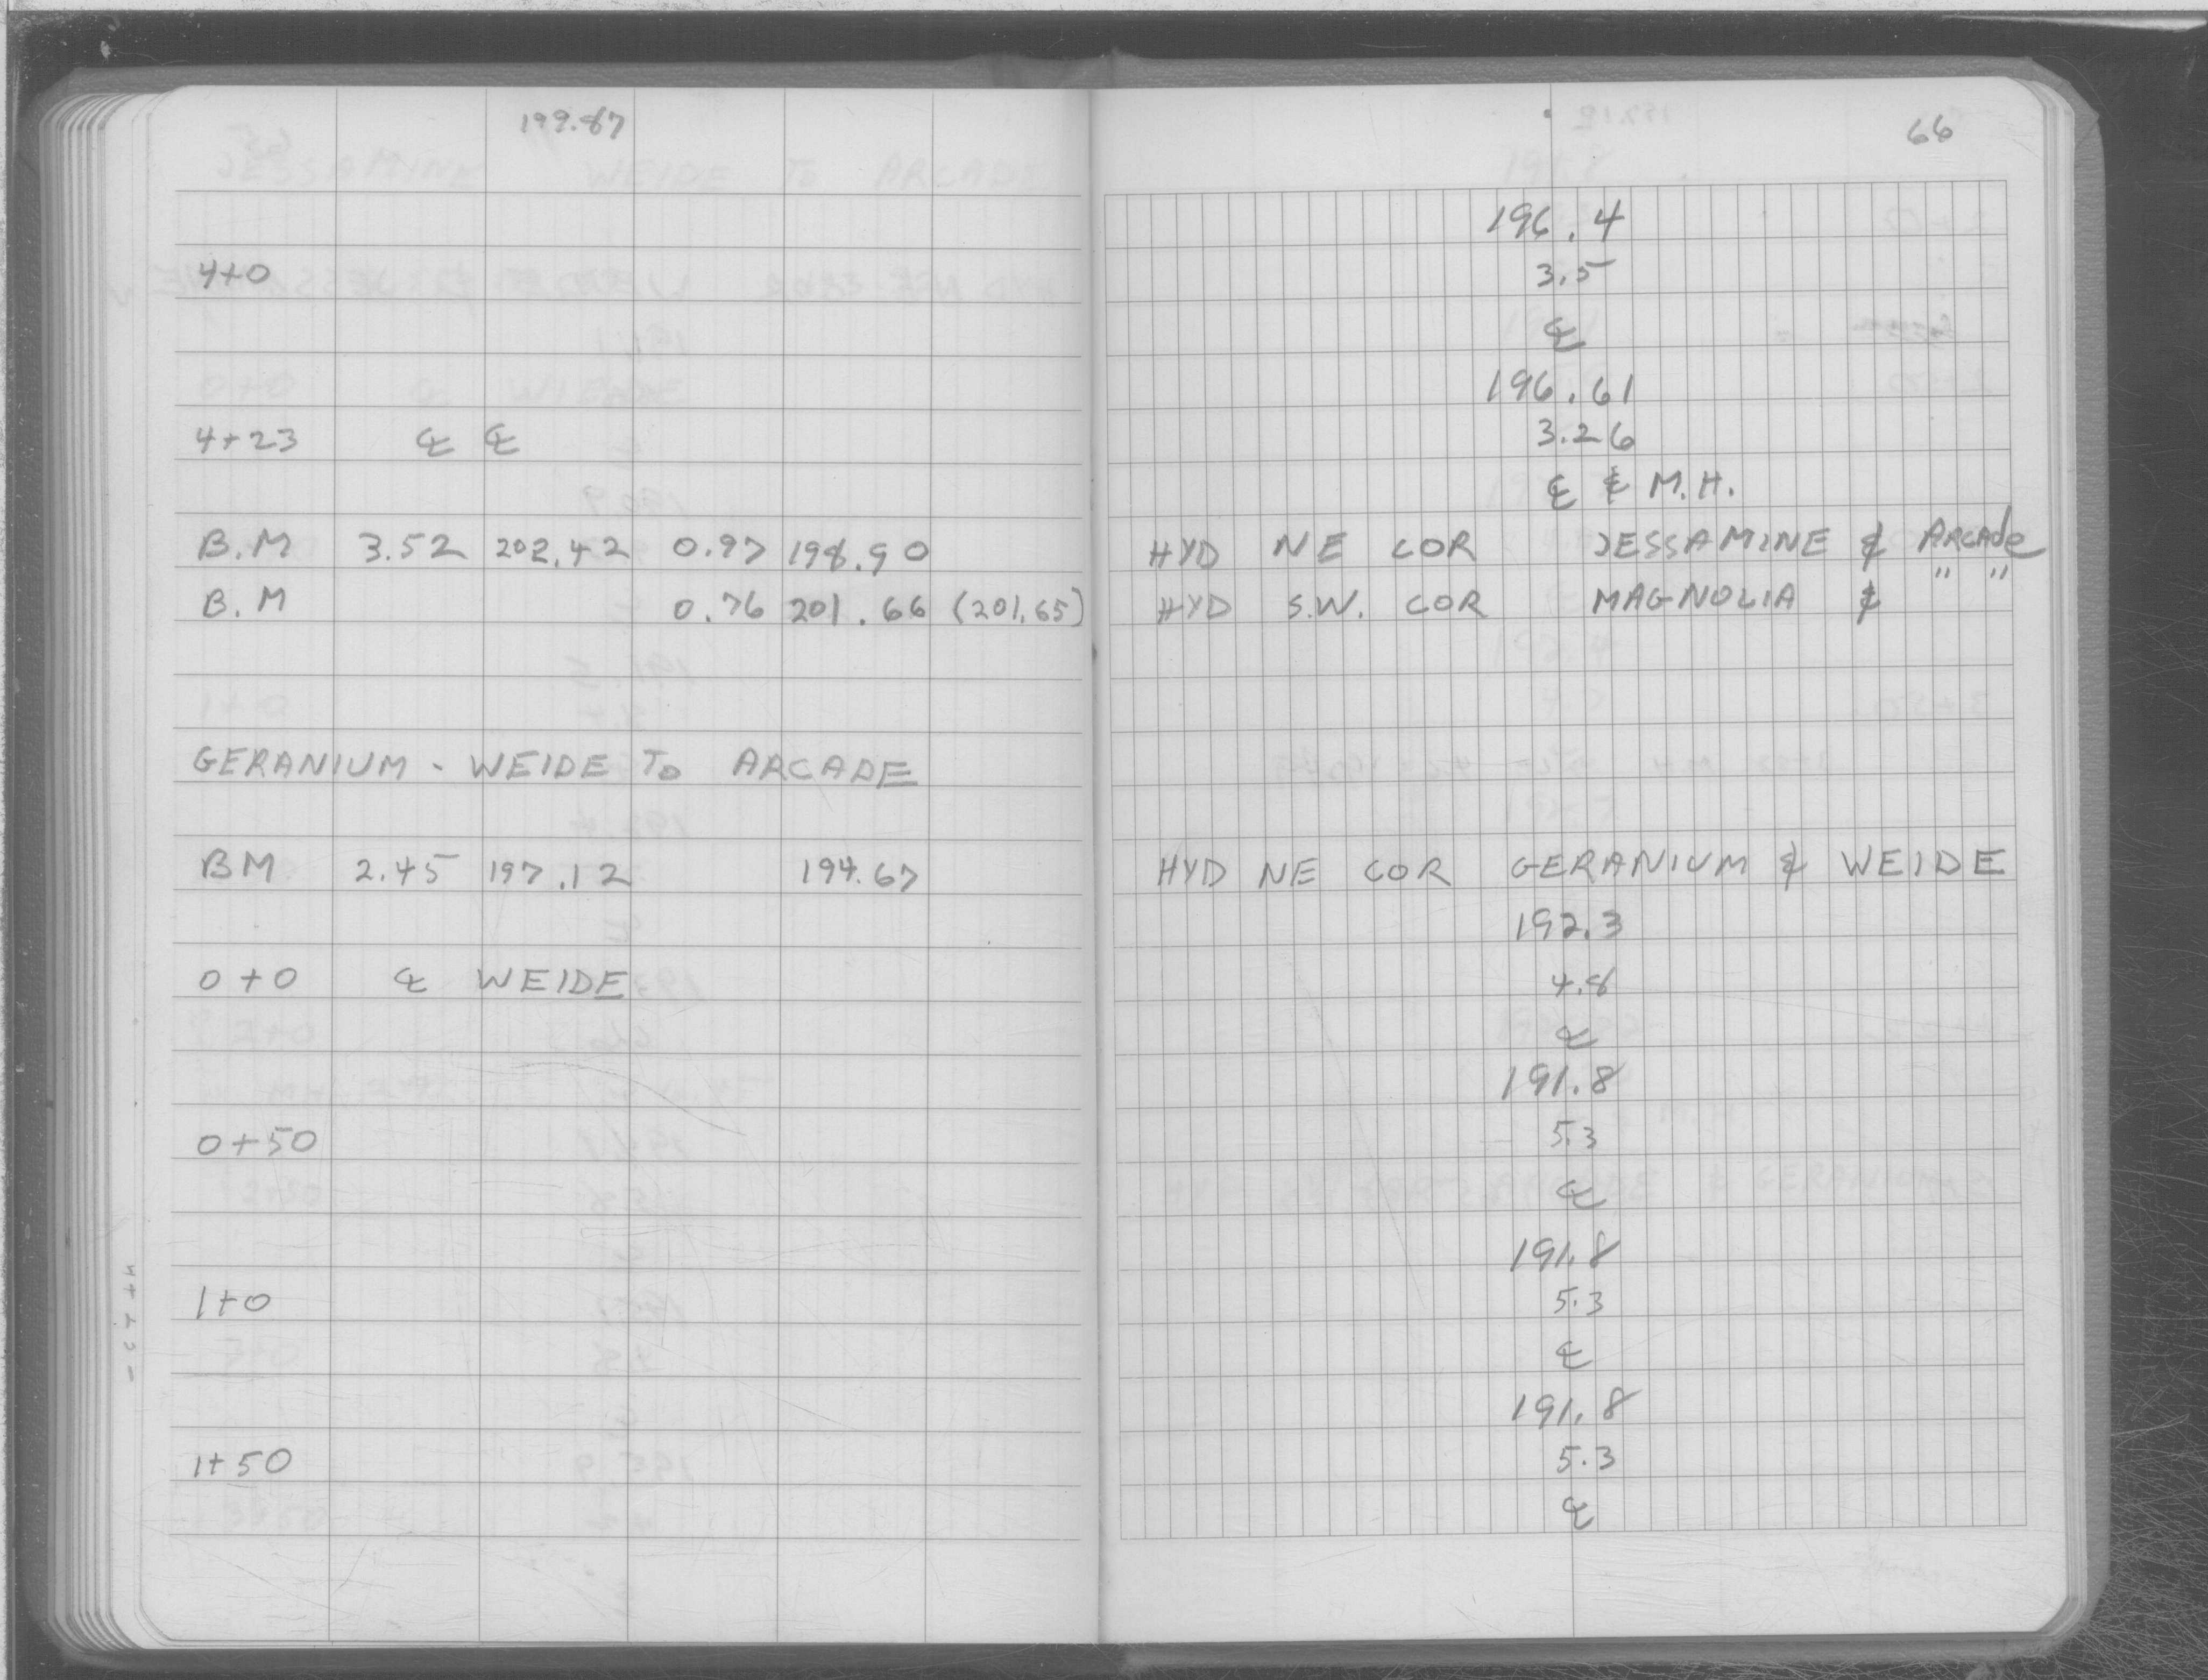 199.87
66
196.4
4+0 3.5
℄
196.61
4+23 ℄ ℄ 3.26
℄ & M.H.
B.M 3.52 202.42 0.97 198.90 HYD NE COR JESSAMINE & ARCADE
B.M 0.76 201.66 (201.65) HYD S.W. COR MAGNOLIA & " "
GERANIUM - WEIDE TO ARCADE
BM 2.45 197.12 194.67 HYD NE COR GERANIUM & WEIDE
192.3
0+0 ℄ WEIDE 4.8
℄
191.8
0+50 5.3
℄
191.8
1+0 5.3
℄
191.8
1+50 5.3
℄